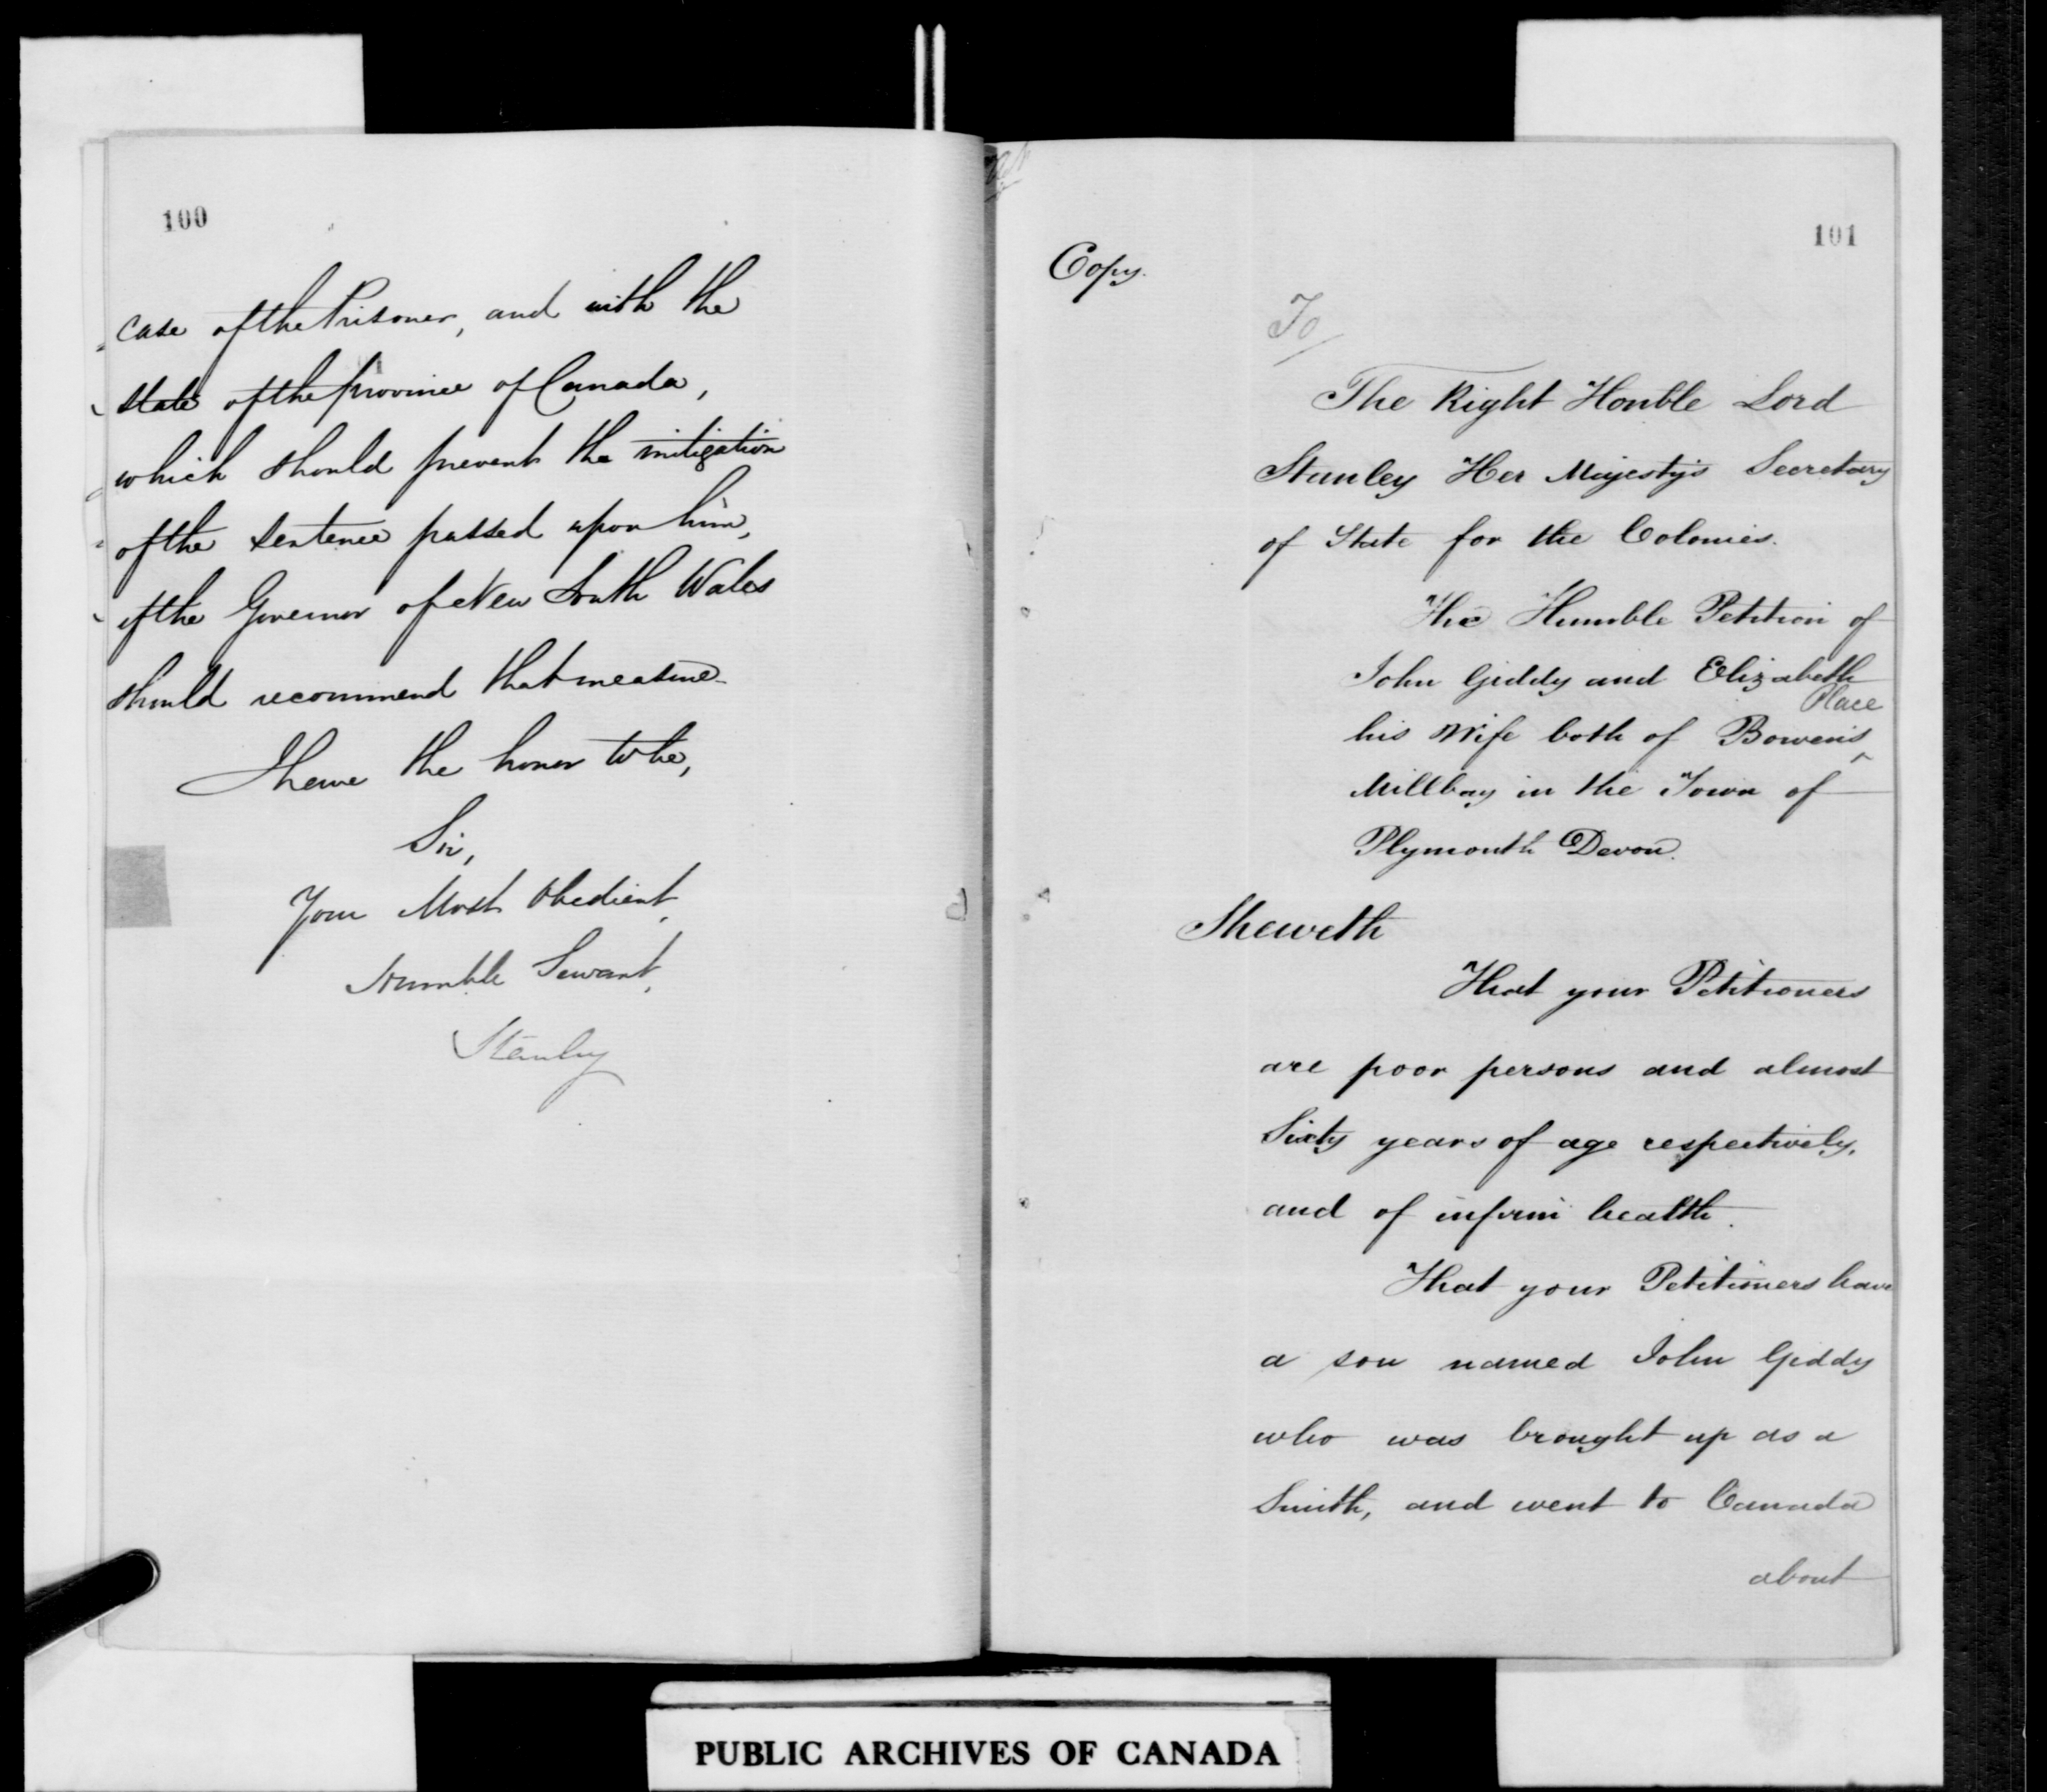 100
case of the Prisoner, and with the
state of the province of Canada,
which should prevent the mitigation
of the sentence passed upon him,
if the Governor of New South Wales
should recommend that measure.
I have the honor to be,
Sir,
Your Most Obedient,
Humble Servant,
Stanley
101
Copy.
To
The Right Honble Lord
Stanley Her Majesty's Secretary
of State for the Colonies.
The Humble Petition of
John Giddy and Elizabeth
his Wife both of Bowen's Place
Millbay in the Town of
Plymouth Devon.
Sheweth
That your Petitioners
are poor persons and almost
Sixty years of age respectively,
and of infirm health.
That your Petitioners have
a son named John Giddy
who was brought up as a
Smith, and went to Canada
about
PUBLIC ARCHIVES OF CANADA